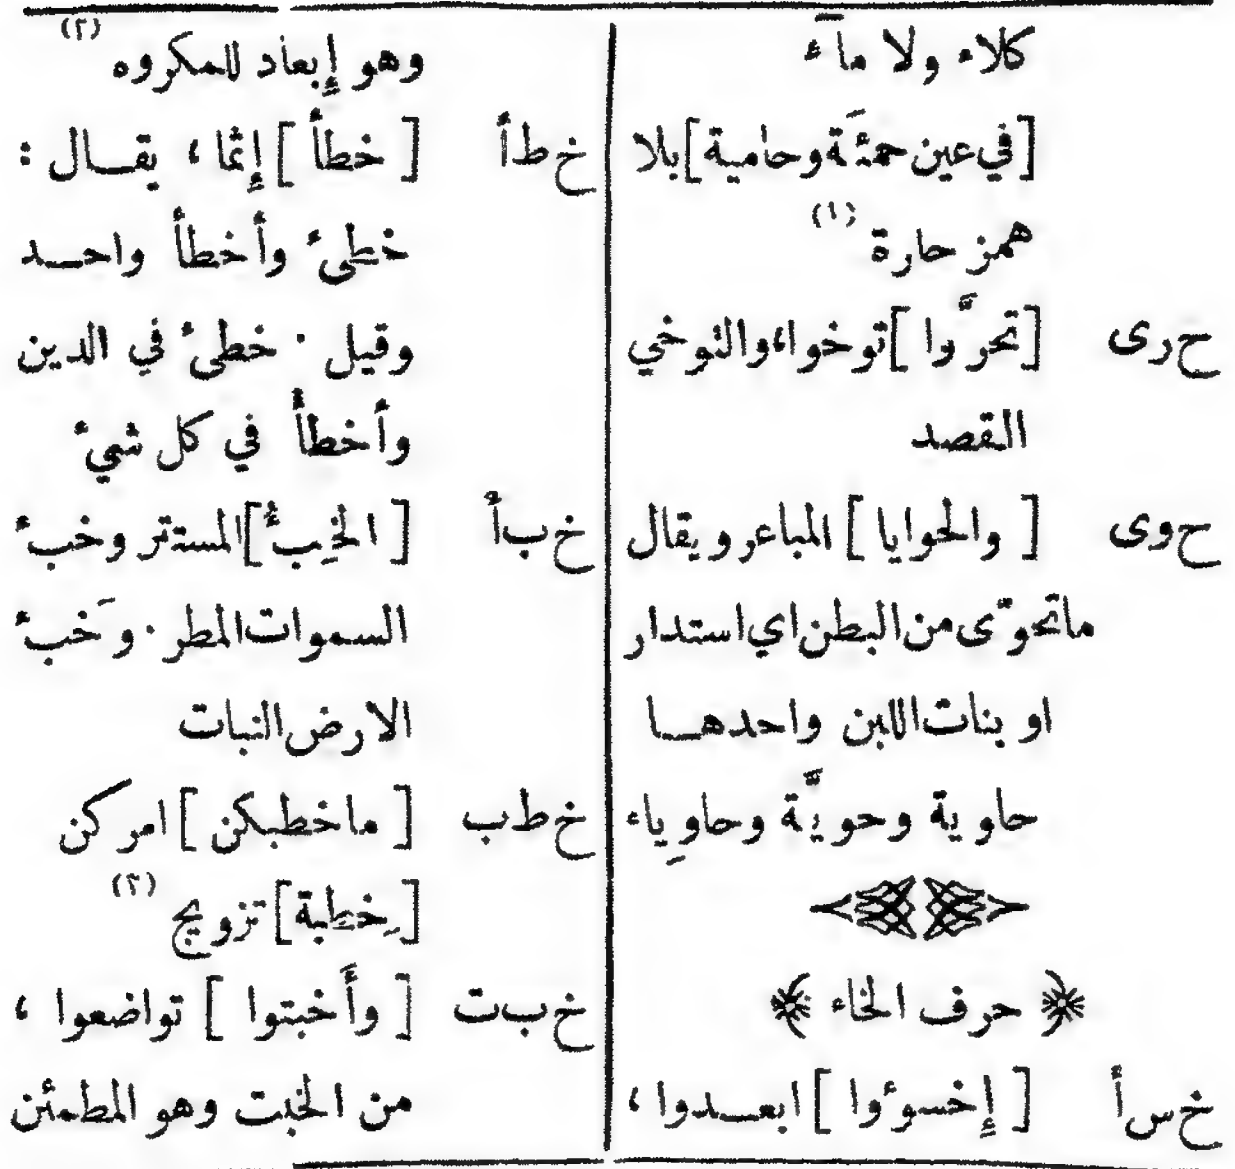 كلاء ولا مآء
[في عين حمئَة وحامية] بلا
همز حارة (١)
ح رى [تحرَّوا] توخوا، والتوخي
القصد
ح وى [والحوايا] المباعر ويقال
ماتحوّى من البطن اي استدار
او بنات اللبن واحدهـــا
حاوية وحويَّة وحاوِياء
﴿ حرف الخاء ﴾
خ س أ [إِخسوءُوا] ابعـــدوا ،
وهو إِبعاد للمكروه (٢)
خ ط أ [خطأً] إِثما ، يقـــال :
خطِىء وأَخطأَ واحـــد
وقيل . خطىء في الدين
وأَخطأَ في كل شيء
خ ب أ [الخبءُ] المستتر وخبء
السموات المطر . وخَبء
الارض النبات
خ ط ب [ماخطبكن] امركن
[خِطبة] تزويج (٣)
خ ب ت [وأَخبتوا] تواضعوا ،
من الخبت وهو المطمئن